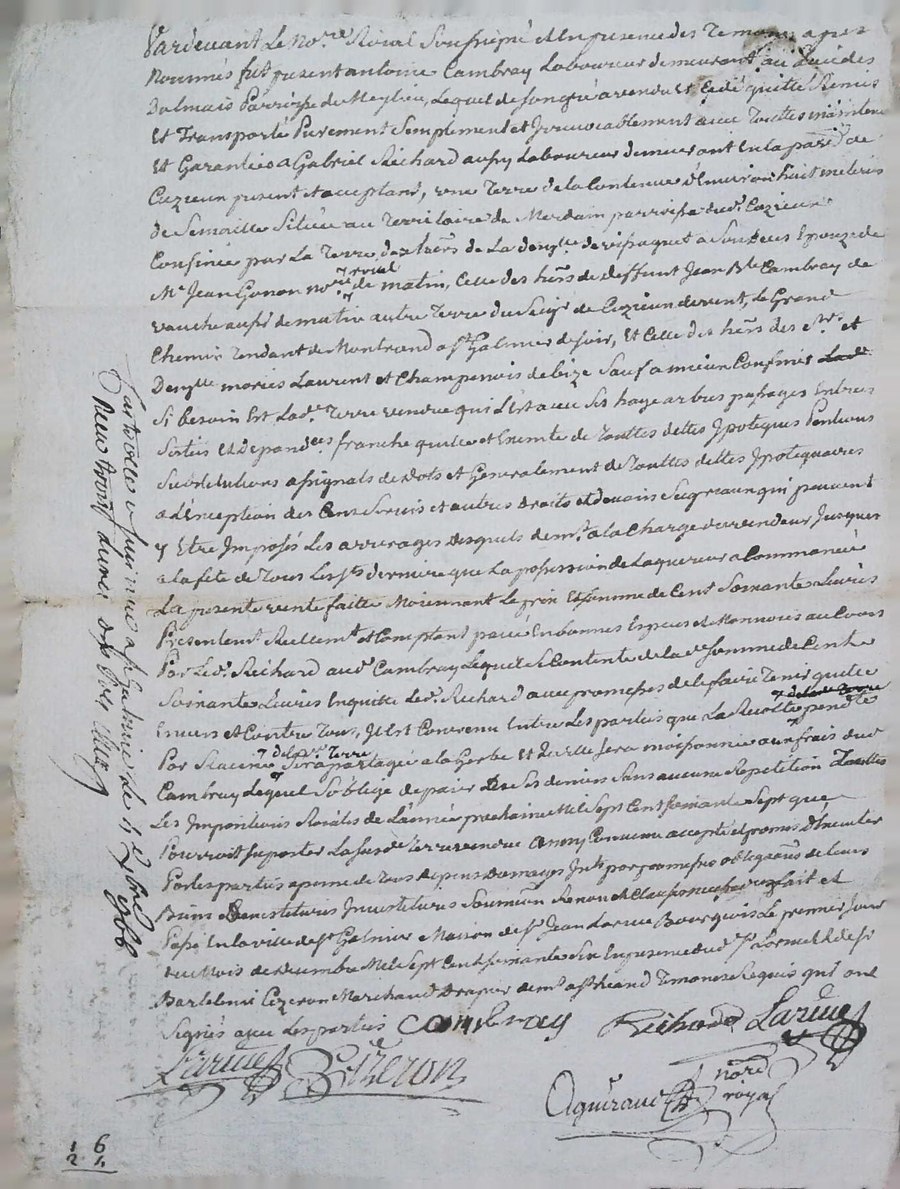 Pardevant Le No.re Royal Soussigné et En presence des Temoins apres
Nommés fut present antoine Cambray Laboureur demeurant au Lieu des
Dalmais Parroisse de Meylieu, Lequel de son gré a vendu et Cedé quitté Remis
Et Transporté Purement Simplement et Irrevocablement avec Touttes maintenue
Et Garanties a Gabriel Richard aussy Laboureur demeurant En la parr.e de
Cuzieu present et acceptant, une Terre de la Contenue d'Environ huit meterés
de Semaille Située au Territoire de Merdain parroisse dud. Cuzieu
Confinée par La Terre des hérs de La dem.lle de
M.e Jean Gonon no.re royal de matin, Celle des hérs de deffunt Jean B.te Cambray de
aussi de matin autre Terre du Seig.r de Cuzieu de vent, Le Grand
Chemin Tendant de Montrond a S.t Galmier de soir, Et Celle des hérs des s.rs et
Dem.lle mories Laurent et Champenois de bize Sauf a mieux Confiner
Si besoin Est Lad. Terre vendue quil Est avec Ses haye arbres passages Entrées
Sorties et Dépandces franche quitte et Exemte de Touttes dettes Ipoteques Pentions
Substitutions assignats de dots et Generalement de Touttes dettes Ipotequaires
a L'exception des Cens Servis et autres droits et devoirs Seigneuriaux qui peuvent
y Etre Imposés Les arrerages desquels demt. a la Charge du vendeur Jusques
a la féte de Tous Les Sts derniere que La possession de Laquereur a Commancée
La presente vente faitte Moiennant Le prix Et somme de Cent Soixante Livres
Presentemt Reellemt et Comptant paiée En bonnes Especes et Monnoies au Cours
Par Led. Richard aud. Cambray Lequel Se Contente de lad. Somme de Cent
Soixante Livres En quitte Led. Richard avec promesses de le faire Tenir quitte
Envers et Contre Tous, Il Est Convenu Entre Les parties que La Recolte pendte
Par Racine de lad. Terre Sera partagée a la Gerbe et qu'elle Sera moissonnée aux frais dud.
Cambray Lequel S'oblige de paier De Ses deniers Sans aucune Repetition Touttes
Les Impositions Roiales de L'année prochaine Mil Sept Cent Soixante Sept que
Pourroit suporter La susd. Terre vendue ainsy Convenu accepté et promis d'Executer
Par les parties a peine de Tous depens Domages Jnts par promesses obligaons de Leurs
Biens Demestitures Jnvestitures Soumissions Renonons et Clauses fait et
Passé En la ville de S.t Galmier Maison de S.r Jean Larue Bourgeois Le premier Jour
du Mois de decembre Mil Sept Cent Soixante Six En presence dud. S.r
Barthelemi Cizeron Marchand Drapier demt a S.t Temoins Requis qui ont
Signés avec Les parties Cambray Richard Larue
Larue Cizeron
Aguiraud nore royal
Controllé a S.t Galmier Le 4 Xbre 1766
Reçu
1 6
2 4